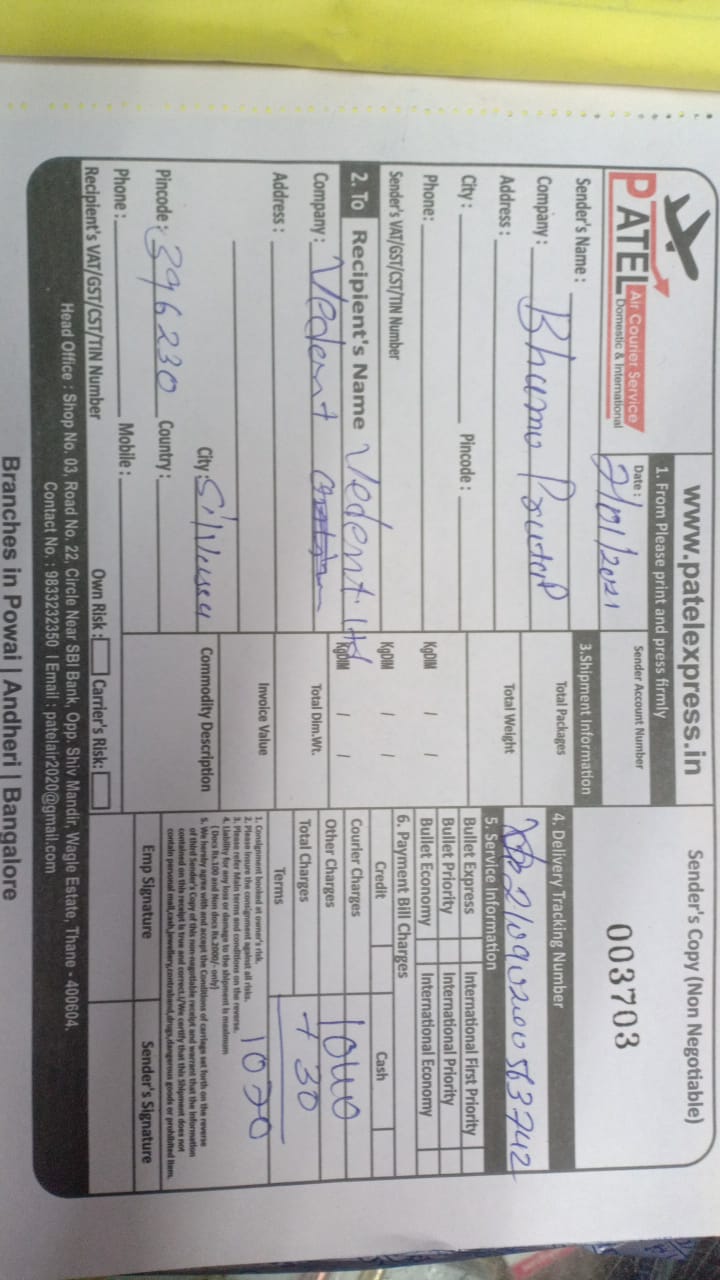 PATEL
Air Courier Service
Domestic & International
www.patelexpress.in
Sender's Copy (Non Negotiable)
003703
1. From Please print and press firmly
Date : 21/01/2021
Sender Account Number
Sender's Name :
Company : Bhumo
Address :
City : Pincode :
Phone:
Sender's VAT/GST/CST/TIN Number
2. To Recipient's Name Vedent Ltd
Company : Vedent
Address :
City :
Pincode : 396230 Country :
Phone : Mobile :
Recipient's VAT/GST/CST/TIN Number
3.Shipment Information
Total Packages
Total Weight
KgDIM / /
KgDIM / /
KgDIM / /
Total Dim.Wt.
Invoice Value
Commodity Description
Own Risk : Carrier's Risk:
4. Delivery Tracking Number
5. Service Information
Bullet Express International First Priority
Bullet Priority International Priority
Bullet Economy International Economy
6. Payment Bill Charges
Credit Cash
Courier Charges 1040
Other Charges + 30
Total Charges
Terms 1070
1. Consignment booked at owner's risk.
2. Please insure the consignment against all risks.
3. Please refer Main terms and conditions on the reverse.
4. Liability for any loss or damage to the shipment is maximum
( Docs Rs.100 and Non docs Rs.2000/- only)
5. We hereby agree with and accept the Conditions of carriage set forth on the reverse
of third Sender's Copy of this non-negotiable receipt and warrant that the information
contained on this receipt is true and correct.I/We certify that this Shipment does not
contain personal mail,cash,jewellery,contraband,drugs,dangerous goods or prohibited item.
Emp Signature Sender's Signature
Head Office : Shop No. 03, Road No. 22, Circle Near SBI Bank, Opp. Shiv Mandir, Wagle Estate, Thane - 400604.
Contact No. : 9833232350 I Email : patelair2020@gmail.com
Branches in Powai | Andheri | Bangalore